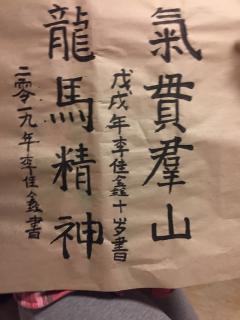 氣貫羣山
戊戌年李佳鑫十岁書
龍馬精神
二零一九年李佳鑫書